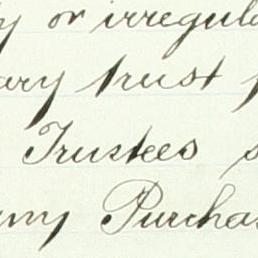 or irregula
ary trust
Trustees s
any Purchas